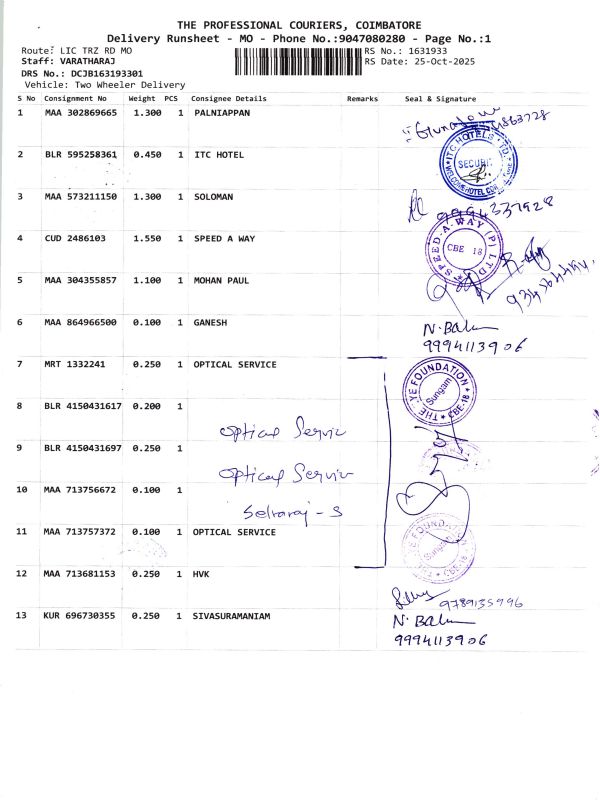 THE PROFESSIONAL COURIERS, COIMBATORE
Delivery Runsheet - MO - Phone No.:9047080280 - Page No.:1
Route: LIC TRZ RD MO RS No.: 1631933
Staff: VARATHARAJ RS Date: 25-Oct-2025
DRS No.: DCJB163193301
Vehicle: Two Wheeler Delivery
S No Consignment No Weight PCS Consignee Details Remarks Seal & Signature
1 MAA 302869665 1.300 1 PALNIAPPAN
2 BLR 595258361 0.450 1 ITC HOTEL ITC HOTELS LTD. SECURITY
3 MAA 573211150 1.300 1 SOLOMAN 9994337928
4 CUD 2486103 1.550 1 SPEED A WAY SPEED-A-WAY (P) LTD CBE 18
5 MAA 304355857 1.100 1 MOHAN PAUL
6 MAA 864966500 0.100 1 GANESH N. Balu
9994113906
7 MRT 1332241 0.250 1 OPTICAL SERVICE THE EYE FOUNDATION Sungam CBE-18
8 BLR 4150431617 0.200 1 optical Servic
9 BLR 4150431697 0.250 1 optical Servic
10 MAA 713756672 0.100 1 Selvaraj - S
11 MAA 713757372 0.100 1 OPTICAL SERVICE THE EYE FOUNDATION Sungam CBE-18
12 MAA 713681153 0.250 1 HVK 9789135996
13 KUR 696730355 0.250 1 SIVASURAMANIAM N. Balu
9994113906